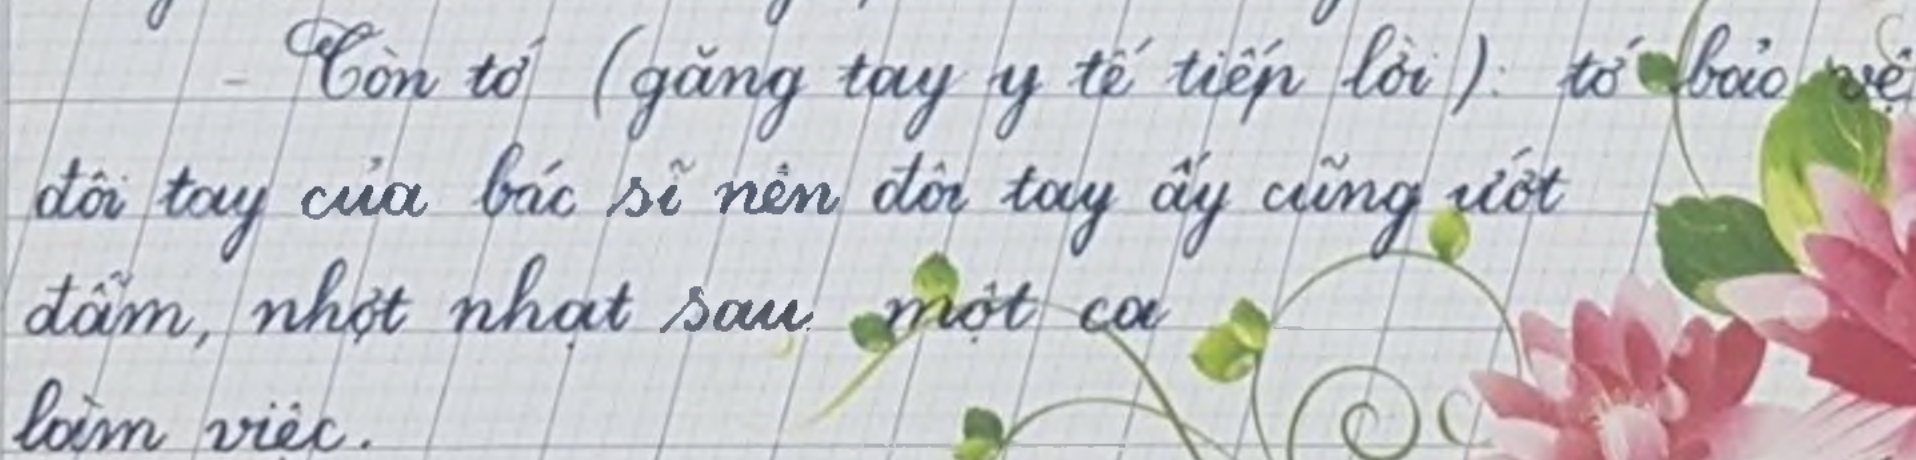 - Còn tớ (găng tay y tế tiếp lời): tớ bảo vệ
đôi tay của bác sĩ nên đôi tay ấy cũng ướt
đẫm, nhợt nhạt sau một ca
làm việc.